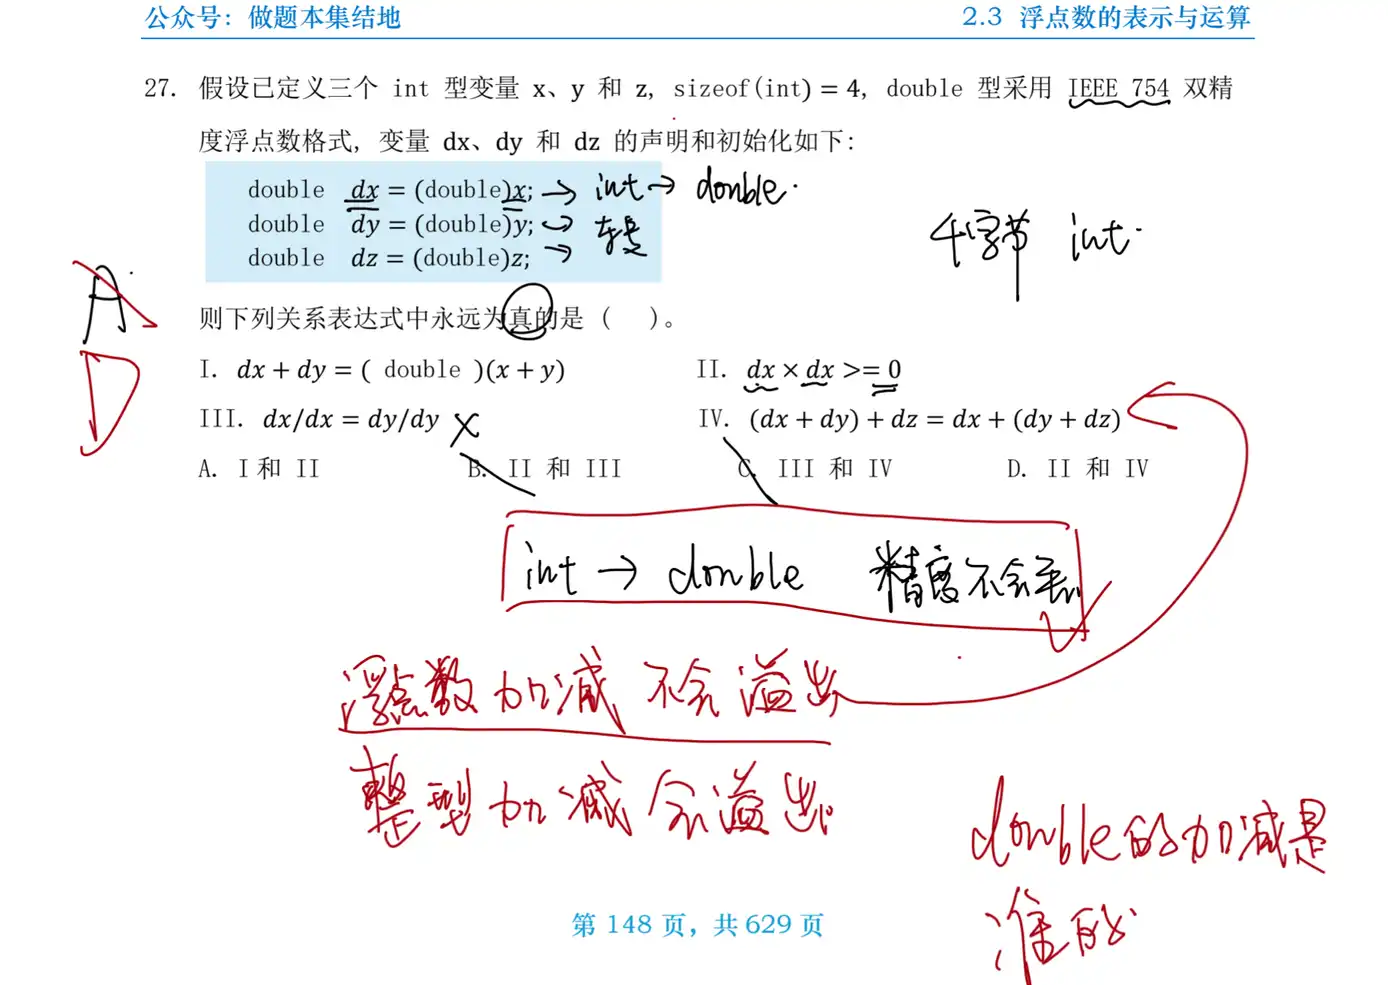 公众号：做题本集结地
2.3 浮点数的表示与运算
27. 假设已定义三个 int 型变量 x、y 和 z，sizeof(int) = 4，double 型采用 IEEE 754 双精
度浮点数格式，变量 dx、dy 和 dz 的声明和初始化如下：
double dx = (double)x; → int → double.
double dy = (double)y; → 转
double dz = (double)z; →
int.
A
则下列关系表达式中永远为真的是（ ）。
D
I. dx + dy = ( double )(x + y)
II. dx × dx >= 0
III. dx/dx = dy/dy X
IV. (dx + dy) + dz = dx + (dy + dz)
A. I 和 II
B. II 和 III
C. III 和 IV
D. II 和 IV
int → double 精度不会丢
浮点数加减 不会溢出
整型加减会溢出
double的加减是
准的
第 148 页，共 629 页